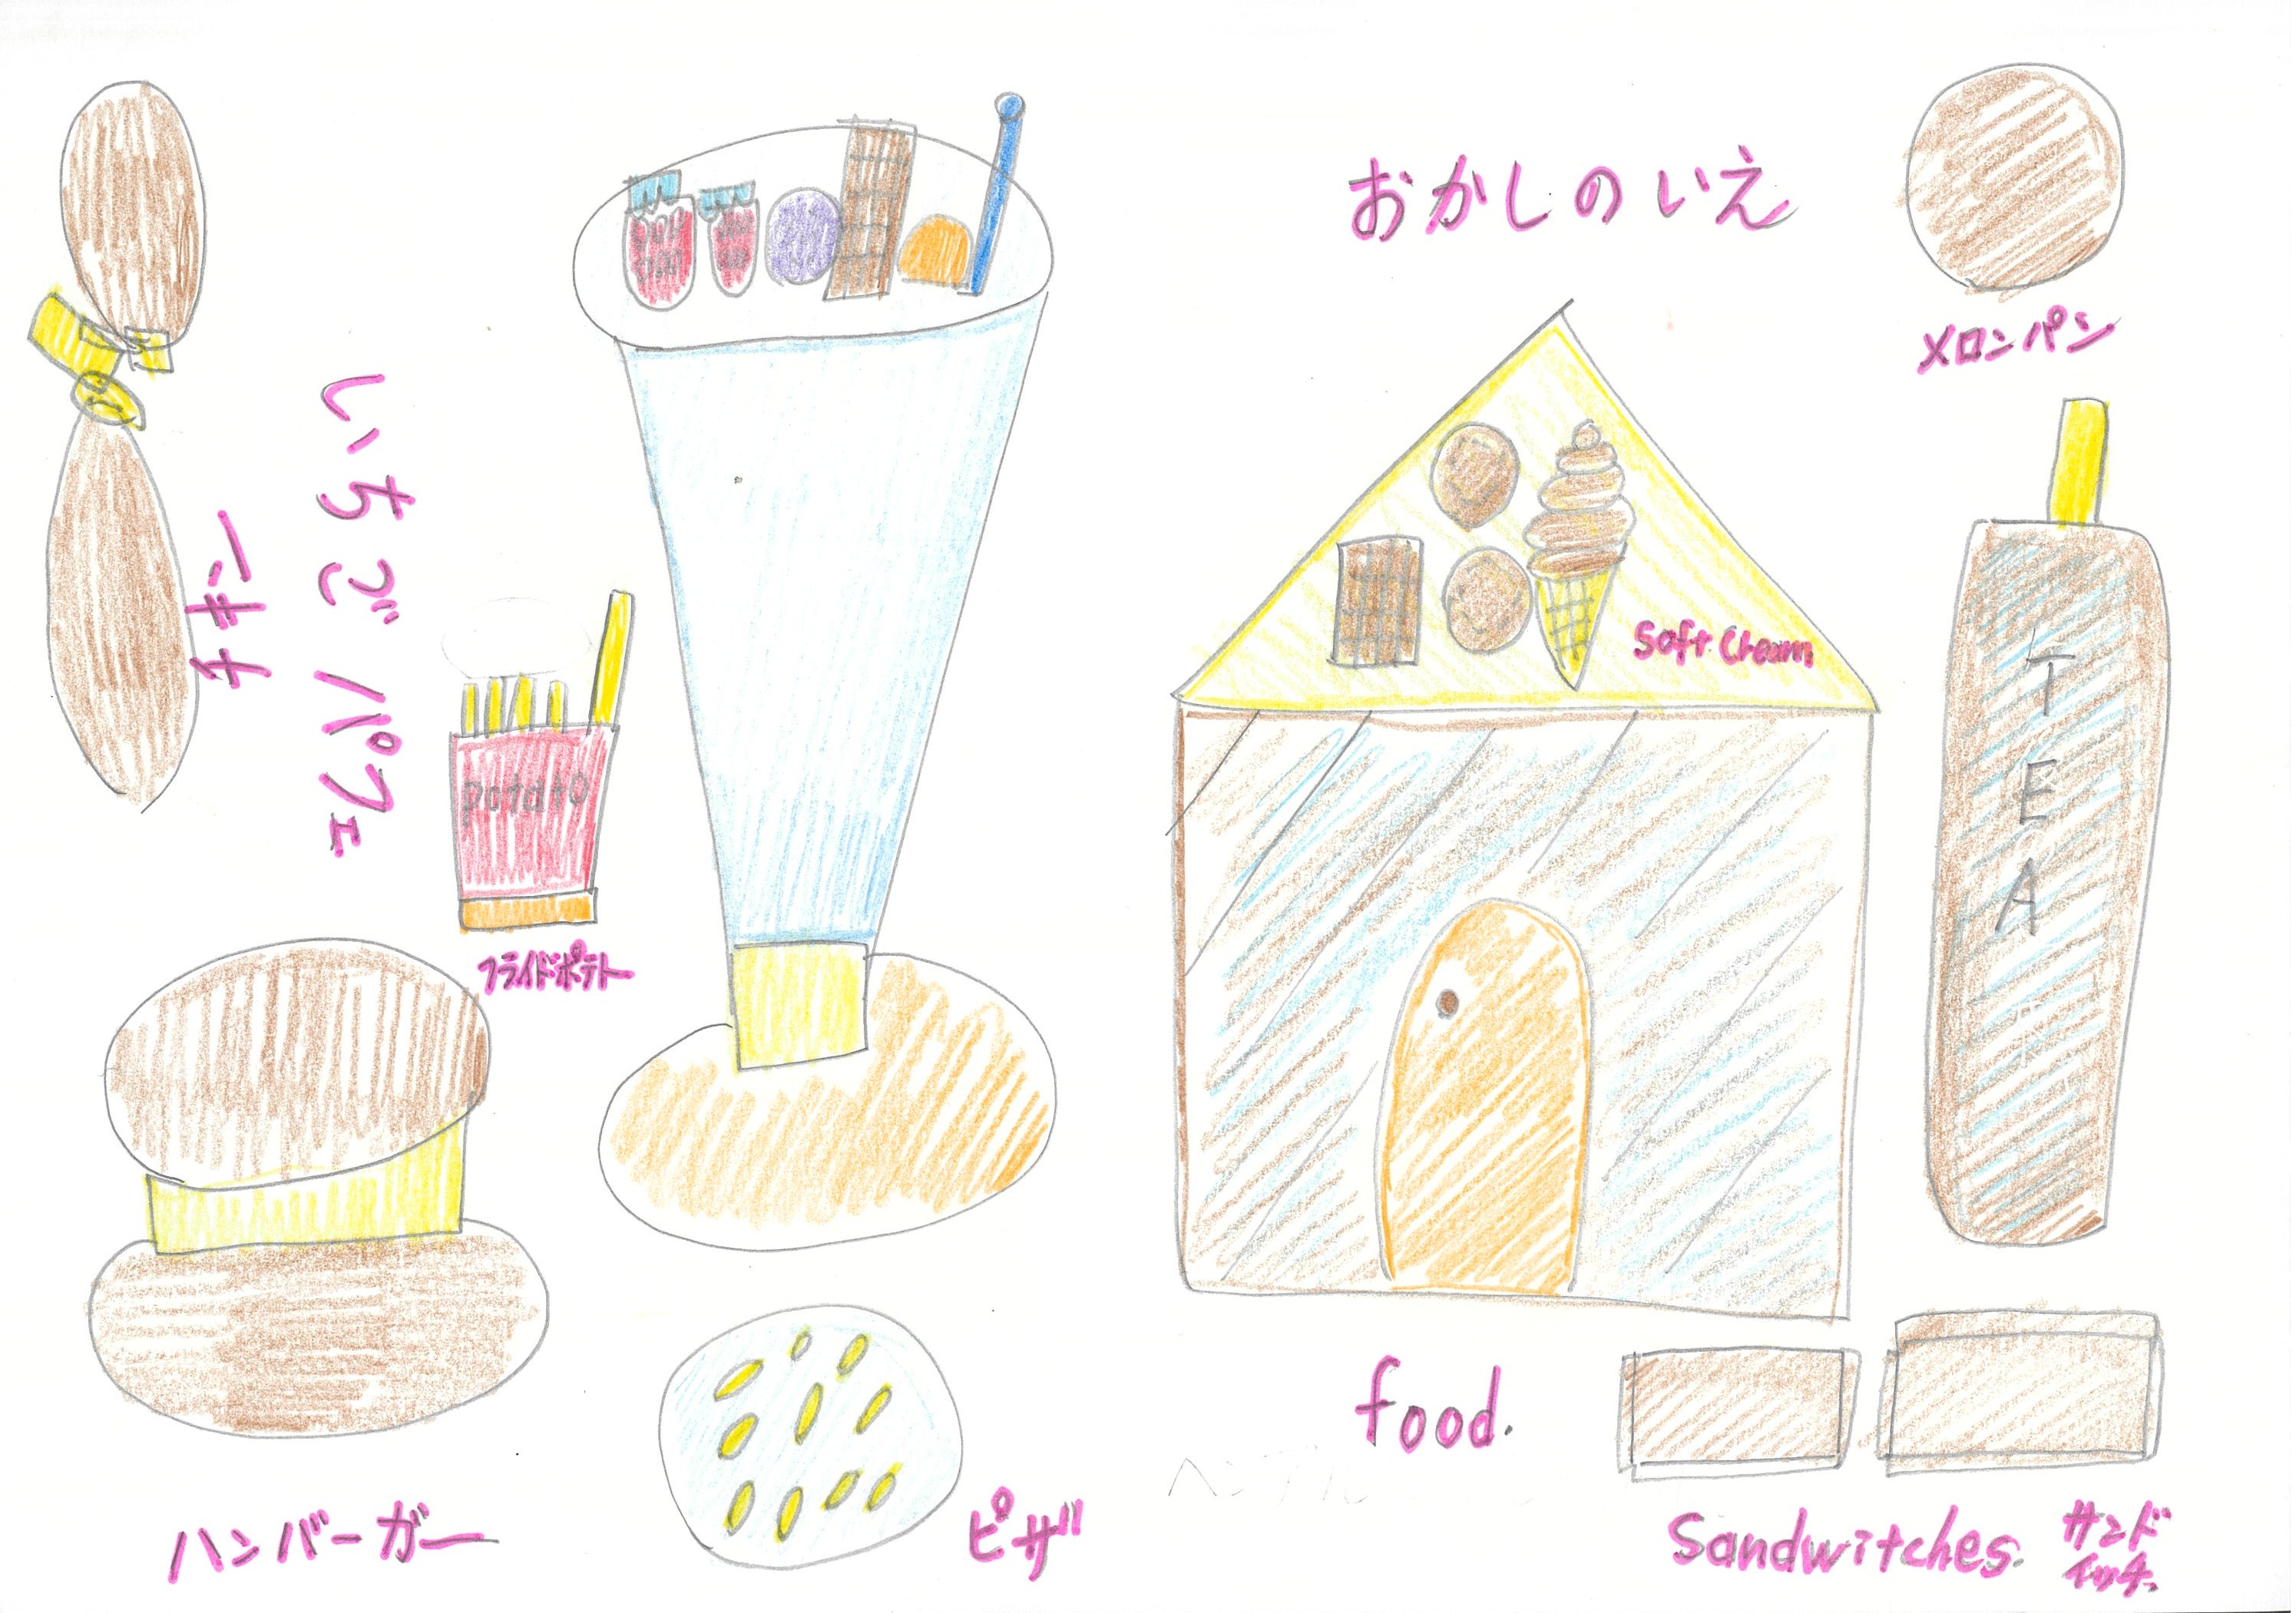 おかしのいえ
メロンパン
チキン
いちごパフェ
Soft Cream
T
E
A
potato
フライドポテト
food.
ハンバーガー
ピザ
Sandwitches.
サンド
イッチ.